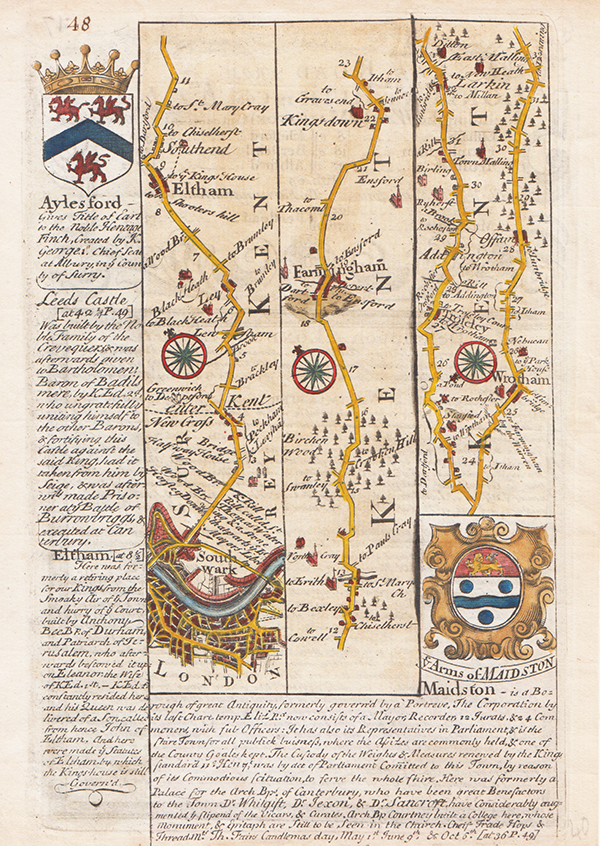 48
Aylesford -
Gives Title of Earl
to the Noble Heneage
Finch, Created by K.
George 1. Chief Seat
at Albury, in ye Coun
ty of Surry.
Leeds Castle
[at 42 ¼ P. 49]
Was built by the No
ble Family of the
Crevequers, & was
afterwards given
to Bartholomew
Baron of Badils
mere, by K. Ed. 2d.
who ungratefully
uniting himself to
the other Barons,
& fortifying this
Castle against the
said King, had it
taken from him by
Seige, & was after
wds. made Priso-
ner at ye Battle of
Burrowbriggs, &
executed at Can
terbury.
Eltham [at 8½]
Here was for-
merly a retiring place
for our Kings from the
Smoaky Air of ye Town
and hurry of ye Court
built by Anthony
Bec Bp. of Durham,
and Patriarch of Je-
rusalem, who after-
ward bestow'd it up
on Eleanor the Wife
of K. Ed. 1st.
constantly resided here
and his Queen was de
livered of a Son called
from hence John of
Eltham. And here
were made ye Statutes
of Eltham, by which
the Kings house is still
Govern'd.
11
to St. Mary Cray
to Dartford
10
to Chiselherst
Southend
9
to ye Kings House
Eltham
8
Shooters hill
a Wood Br.
7
to Bromley
to Bromley
Black Heath
Ley
6
to Black Heath
Lewisham
5
to Brackley
Greenwich
to Deptford
Enter Kent
New Cross
Half way House
Bridge
to Peckham
SURREY
KENT
South
wark
LONDON
23
to Itham
to Gravesend
22
Kingsdown
21
Ensford
to Thacom
20
19
to Enford
Farningham
Dart
ford
18
17
16
Birchen
Wood
15
to Swanley
14
North Cray
to Pauls Cray
to Erith
13
to St. Mary
Ch.
to Bexley
Chiselherst
to Cowell
12
KENT
Ditton
East Halling
to New Heath
Larkin
to Millan
31
a Rill
Town Malling
Birling
30
30
Ryherst
29
29
to Rochester
Offam
Addington
to Wrotham
28
28
to Tunbridge
a Rill
to Addington
27
27
to Itham
Trotesley
to Wrotham
Nebucan
26
26
to ye Park
House
a Pond
Wrotham
to Rochester
25
25
Stansted
to Wrotham
24
to Itham
to Dartford
KENT
ye Arms of MAIDSTON
Maidston - is a Bo-
rough of great Antiquity, formerly govern'd by a Portreve, The Corporation by
its last Chart. temp. Eliz. Rs. now consists of a Mayor, Recorder, 12 Jurats, & 24 Com
moners, with sub Officers: It has also its Representatives in Parliament, & is the
shire Town for all publick buisness, where the Assizes are commonly held, & one of
the County Goales kept. The Custody of the Weights & Measures renewed by the Kings
standard in Hen. 7, was by act of Parliament Comitted to this Town, by reason
of its Commodious scituation, to serve the whole shire. Here was formerly a
Palace for the Arch Bps. of Canterbury, who have been great Benefactors
to the Town Dr. Whitgift, Dr. Jexon, & Dr. Sancroft, have considerably aug-
mented ye stipend of the Vicars, & Curates, Arch Bp Courtney built a College here, whose
Monument, & Epitaph are still to be Seen in the Church. Cheif Trade Hops &
Thread Mt. Th. Fairs Candlemas day, May 1st. June 9th. & Oct. 6th. [at 36 P. 49]